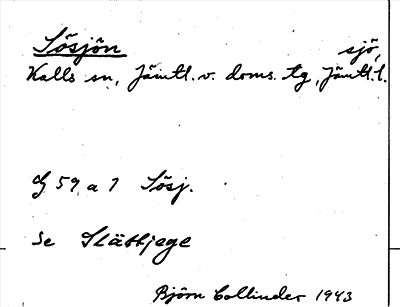 Sösjön sjö,
Kalls sn, Jämtl. v. doms. tg, Jämtl. l.
G 59 a 7 Sösj.
Se Slättjege
Björn Collinder 1943